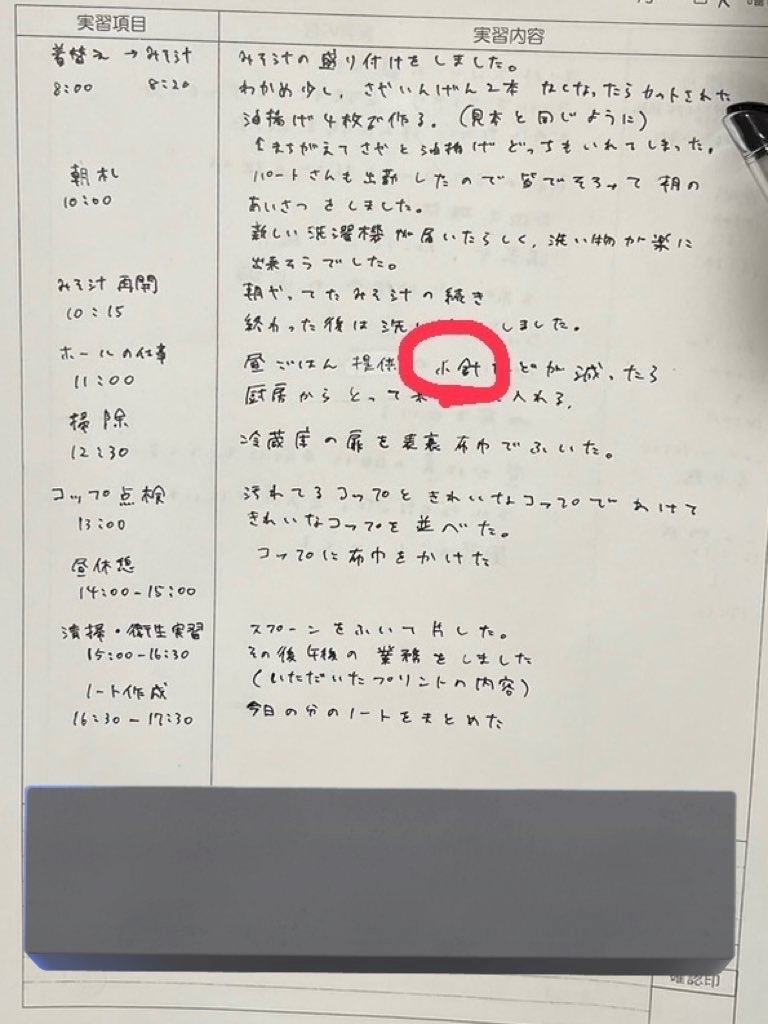 実習項目 実習内容
着替え→みそ汁 みそ汁の盛り付けをしました。
8:00 8:20 わかめ少し、さやいんげん2本 なくなったらカットされた
油揚げ4枚で作る。(見本と同じように)
↑まちがえてさやと油揚げどっちもいれてしまった。
朝札 パートさんも出勤したので皆でそろって朝の
10:00 あいさつをしました。
新しい洗濯機が届いたらしく、洗い物が楽に
出来そうでした。
みそ汁再開 朝やってたみそ汁の続き
10:15 終わった後は洗い しました。
ホールの仕事 昼ごはん提供 小針などが減ったら
11:00 厨房からとって 入れる。
掃除 冷蔵庫の扉を表裏布巾でふいた。
12:30
コップ点検 汚れてるコップときれいなコップでわけて
13:00 きれいなコップを並べた。
昼休憩 コップに布巾をかけた
14:00-15:00
清掃・衛生実習 スプーンをふいて片した。
15:00-16:30 その後午後の業務をしました
ノート作成 (いただいたプリントの内容)
16:30-17:30 今日の分のノートをまとめた
確認印